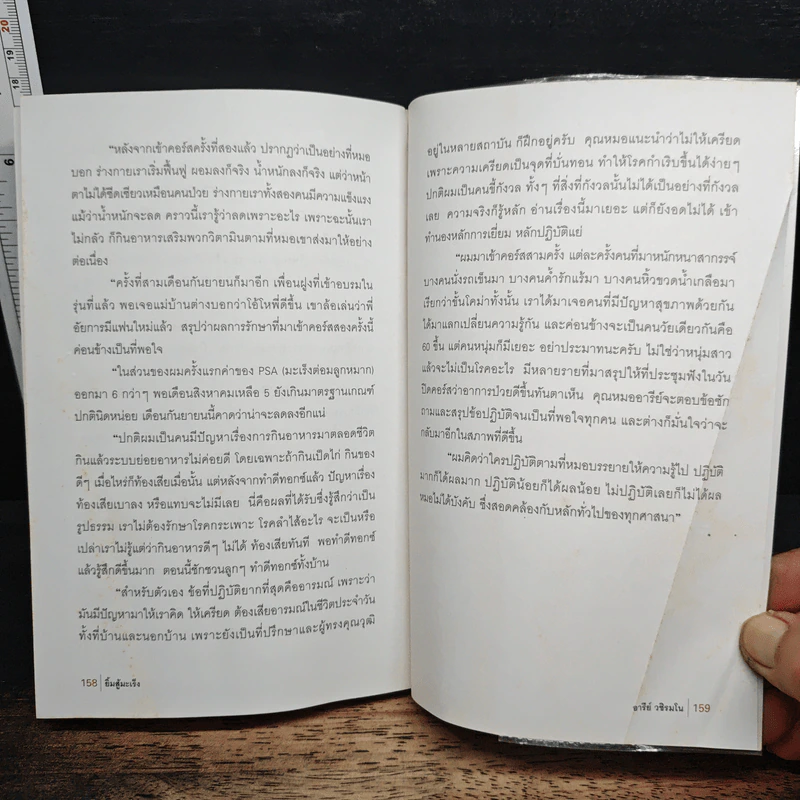 20
19
18
6
"หลังจากเข้าคอร์สครั้งที่สองแล้ว ปรากฏว่าเป็นอย่างที่หมอ
บอก ร่างกายเราเริ่มฟื้นฟู ผอมลงก็จริง น้ำหนักลงก็จริง แต่ว่าหน้า
ตาไม่ได้ซีดเซียวเหมือนคนป่วย ร่างกายเราทั้งสองคนมีความแข็งแรง
แม้ว่าน้ำหนักจะลด คราวนี้เรารู้ว่าลดเพราะอะไร เพราะฉะนั้นเรา
ไม่กลัว ก็กินอาหารเสริมพวกวิตามินตามที่หมอเขาส่งมาให้อย่าง
ต่อเนื่อง
"ครั้งที่สามเดือนกันยายนก็มาอีก เพื่อนฝูงที่เข้าอบรมใน
รุ่นที่แล้ว พอเจอแม่บ้านต่างบอกว่าโอ้โหพี่ดีขึ้น เขาล้อเล่นว่าพี่
อัยการมีแฟนใหม่แล้ว สรุปว่าผลการรักษาที่มาเข้าคอร์สสองครั้งนี้
ค่อนข้างเป็นที่พอใจ
"ในส่วนของผมครั้งแรกค่าของ PSA (มะเร็งต่อมลูกหมาก)
ออกมา 6 กว่าๆ พอเดือนสิงหาคมเหลือ 5 ยังเกินมาตรฐานเกณฑ์
ปกตินิดหน่อย เดือนกันยายนนี้คาดว่าน่าจะลดลงอีกแน่
"ปกติผมเป็นคนมีปัญหาเรื่องการกินอาหารมาตลอดชีวิต
กินแล้วระบบย่อยอาหารไม่ค่อยดี โดยเฉพาะถ้ากินเป็ดไก่ กินของ
ดีๆ เมื่อไหร่ก็ท้องเสียเมื่อนั้น แต่หลังจากทำดีทอกซ์แล้ว ปัญหาเรื่อง
ท้องเสียเบาลง หรือแทบจะไม่มีเลย นี่คือผลที่ได้รับซึ่งรู้สึกว่าเป็น
รูปธรรม เราไม่ต้องรักษาโรคกระเพาะ โรคลำไส้อะไร จะเป็นหรือ
เปล่าเราไม่รู้แต่ว่ากินอาหารดีๆ ไม่ได้ ท้องเสียทันที พอทำดีทอกซ์
แล้วรู้สึกดีขึ้นมาก ตอนนี้ชักชวนลูกๆ ทำดีทอกซ์ทั้งบ้าน
"สำหรับตัวเอง ข้อที่ปฏิบัติยากที่สุดคืออารมณ์ เพราะว่า
มันมีปัญหามาให้เราคิด ให้เครียด ต้องเสียอารมณ์ในชีวิตประจำวัน
ทั้งที่บ้านและนอกบ้าน เพราะยังเป็นที่ปรึกษาและผู้ทรงคุณวุฒิ
158 | ยิ้มสู้มะเร็ง
อยู่ในหลายสถาบัน ก็ฝึกอยู่ครับ คุณหมอแนะนำว่าไม่ให้เครียด
เพราะความเครียดเป็นจุดที่บั่นทอน ทำให้โรคกำเริบขึ้นได้ง่ายๆ
ปกติผมเป็นคนขี้กังวล ทั้งๆ ที่สิ่งที่กังวลนั้นไม่ได้เป็นอย่างที่กังวล
เลย ความจริงก็รู้หลัก อ่านเรื่องนี้มาเยอะ แต่ก็ยังอดไม่ได้ เข้า
ทำนองหลักการเยี่ยม หลักปฏิบัติแย่
"ผมมาเข้าคอร์สสามครั้ง แต่ละครั้งคนที่มาหนักหนาสากรรจ์
บางคนนั่งรถเข็นมา บางคนค้ำรักแร้มา บางคนหิ้วขวดน้ำเกลือมา
เรียกว่าขั้นโคม่าทั้งนั้น เราได้มาเจอคนที่มีปัญหาสุขภาพด้วยกัน
ได้มาแลกเปลี่ยนความรู้กัน และค่อนข้างจะเป็นคนวัยเดียวกันคือ
60 ขึ้น แต่คนหนุ่มก็มีเยอะ อย่าประมาทนะครับ ไม่ใช่ว่าหนุ่มสาว
แล้วจะไม่เป็นโรคอะไร มีหลายรายที่มาสรุปให้ที่ประชุมฟังในวัน
ปิดคอร์สว่าอาการป่วยดีขึ้นทันตาเห็น คุณหมออารีย์จะตอบข้อซัก
ถามและสรุปข้อปฏิบัติจนเป็นที่พอใจทุกคน และต่างก็มั่นใจว่าจะ
กลับมาอีกในสภาพที่ดีขึ้น
"ผมคิดว่าใครปฏิบัติตามที่หมอบรรยายให้ความรู้ไป ปฏิบัติ
มากก็ได้ผลมาก ปฏิบัติน้อยก็ได้ผลน้อย ไม่ปฏิบัติเลยก็ไม่ได้ผล
หมอไม่ได้บังคับ ซึ่งสอดคล้องกับหลักทั่วไปของทุกศาสนา"
อารีย์ วชิรมโน | 159